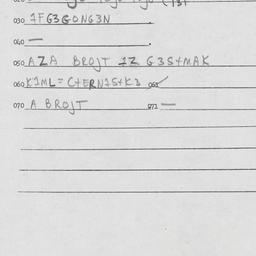 030 1FG3GONG3N
040 —
050 AZA BROJT 1Z G3S+MAK
060 K1ML=C+ERN1S+K3 063
070 A BROJT 071 —